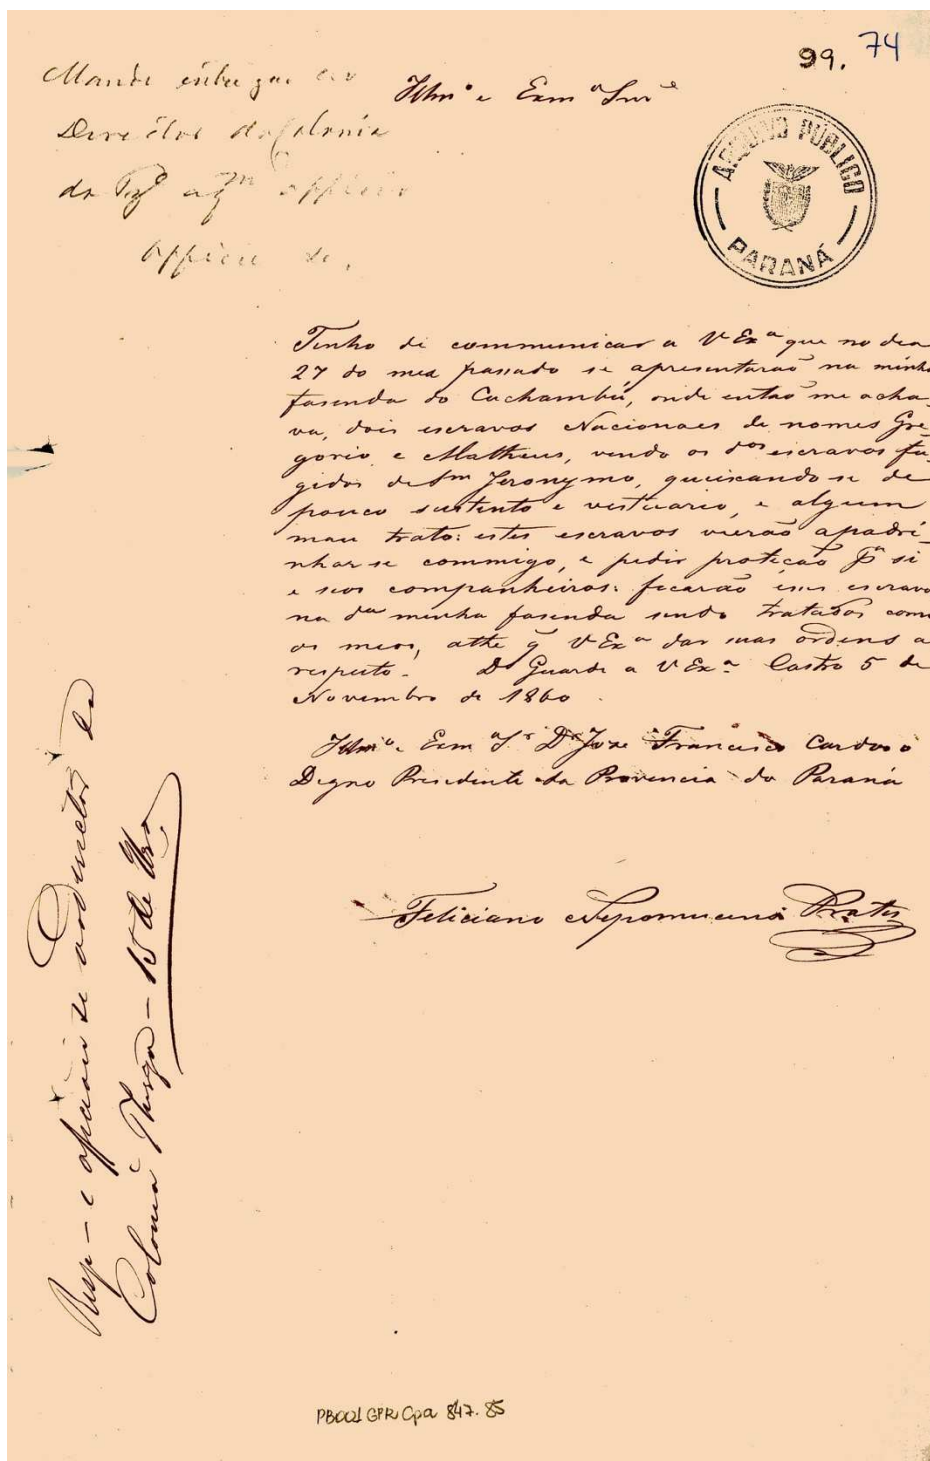 99. 74
Mande entregar ao
Director da Colonia
da aqm officio
officie se.
Illmº e Exmº Snr
ARQUIVO PÚBLICO
PARANÁ
Tenho de communicar a V Exª que no dia
27 do mez passado se apresentaraõ na minha
fasenda do Cachambú, onde entaõ me acha-
va, dois escravos Nacionaes de nomes Gre-
gorio e Matheus, vendo os dos escravos fu-
gidos de Sm Jeronymo, queixando-se de
pouco sustento e vestuario, e algum
mau trato: estes escravos vieraõ apadri-
nhar-se commigo, e pedir proteçaõ pª si
e seos companheiros: ficaraõ esses escravos
na dª minha fasenda sendo tratados como
os meos, athe q V Exª dar suas ordens a
respeito. Ds Guarde a V Exª Castro 5 de
Novembro de 1860.
Illmº e Exmº Sr Dr Joze Francisco Cardozo
Digno Presidente da Provencia do Paraná
Feliciano Nepomuceno Prates
Resp - e officiou se ao Director da
Colonia Thereza - 15 de Nbro
PB001 GPR Cpa 847.85